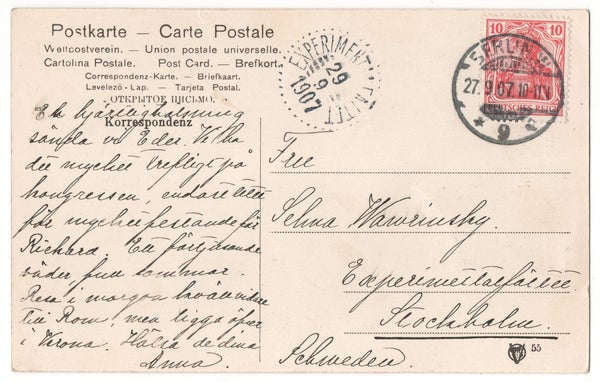 Postkarte — Carte Postale
Weltcostverein. — Union postale universelle.
Cartolina Postale. Post Card. — Brefkort.
Correspondenz-Karte. — Briefkaart.
Levelező-Lap. — Tarjeta Postal.
ОТКРЫТОЕ ПИСЬМО.
Korrespondenz
En hjärtlig helsning
sända vi Eder. Vi ha
det mycket trefligt på
kongressen, endast litet
för mycket festande för
Richard. Ett förtjusande
väder full sommar.
Resa i morgon kväll vidare
till Rom, men ligga öfver
i Verona. Hälsa de dina
Anna.
EXPERIMENTALFÄLTET
29
9
1907
10 10
DEUTSCHES REICH
BERLIN W
27.9.07.10-11V
* 9
Frue
Selma Wawrinsky.
Experimentalfältet
Stockholm.
Schweden.
55